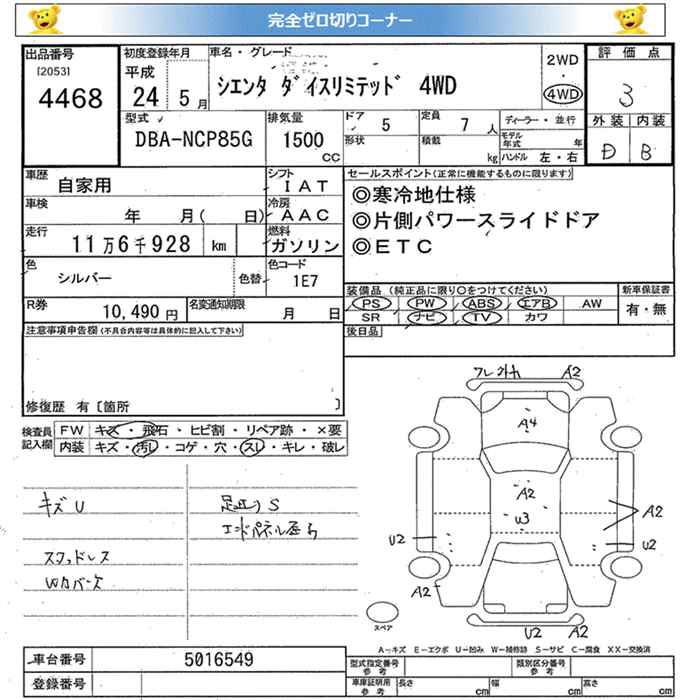 完全ゼロ切りコーナー
出品番号
[2053]
4468
初度登録年月
平成
24 5月
車名・グレード
シエンタ ダイスリミテッド 4WD
2WD
・
4WD
評価点
3
外装 内装
D B
型式
DBA-NCP85G
排気量
1500
CC
ドア 5
形状
定員 7人
積載 kg
ディーラー・並行
モデル年式 年
ハンドル 左・右
車歴
自家用
シフト
IAT
車検
年 月( 日)
冷房
AAC
走行
11万6千928 km
燃料
ガソリン
色
シルバー
色替
色コード
1E7
R券
10,490円
名変通知期限
月 日
セールスポイント(正常に機能するものに限ります)
◎寒冷地仕様
◎片側パワースライドドア
◎ETC
装備品(純正品に限り○をつけてください)
PS PW ABS エアB AW
SR ナビ TV カワ
新車保証書
有・無
後日品
注意事項申告欄(不具合内容等は具体的に記入して下さい)
修復歴 有〔箇所 〕
検査員記入欄
FW キズ・飛石・ヒビ割・リペア跡・×要
内装 キズ・汚れ・コゲ・穴・スレ・キレ・破レ
キズU
スタッドレス
Wカバーズ
足廻りS
エンドパネル歪ミ
フレント下 A2
A4
A2
U3
A2
U2
U2
A2
U2 A2
スペア
A－キズ E－エクボ U－凹み W－補修跡 S－サビ C－腐食 XX－交換済
車台番号 5016549
登録番号
型式指定番号 参考
類別区分番号 参考
車庫証明用 参考
長さ cm
幅 cm
高さ cm